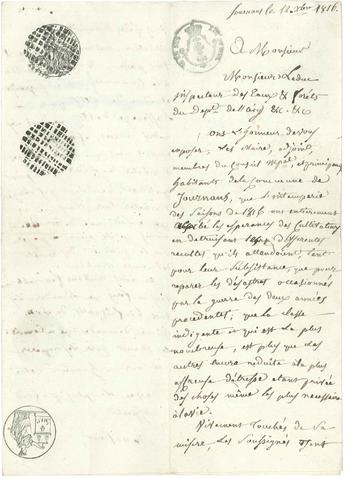 Journans le 12 Xbre 1816.
A Monsieur
Monsieur Leduc
inspecteur des Eaux & forêts
du Dept. de l'ain &c &c.
ont l'honneur de vous
exposer, Les Maire, adjoint,
membres du Conseil Mpal et principaux
habitants de la Commune de
Journans, que l'intemperie
des Saisons de 1816 ont entierement
les esperances des Cultivateurs
en detruisant les differentes
recoltes qu'ils attendoient, tant
pour leur Subsistance, que pour
reparer les désastres occasionnés
par la guerre des deux années
précedentes; que la classe
indigente et qui est la plus
nombreuse, est plus que les
autres encore reduite à la plus
affreuse détresse etant privée
des choses même les plus necessaires
à la vie.
Vivement Touchés de Sa
misere, Les Soussignés